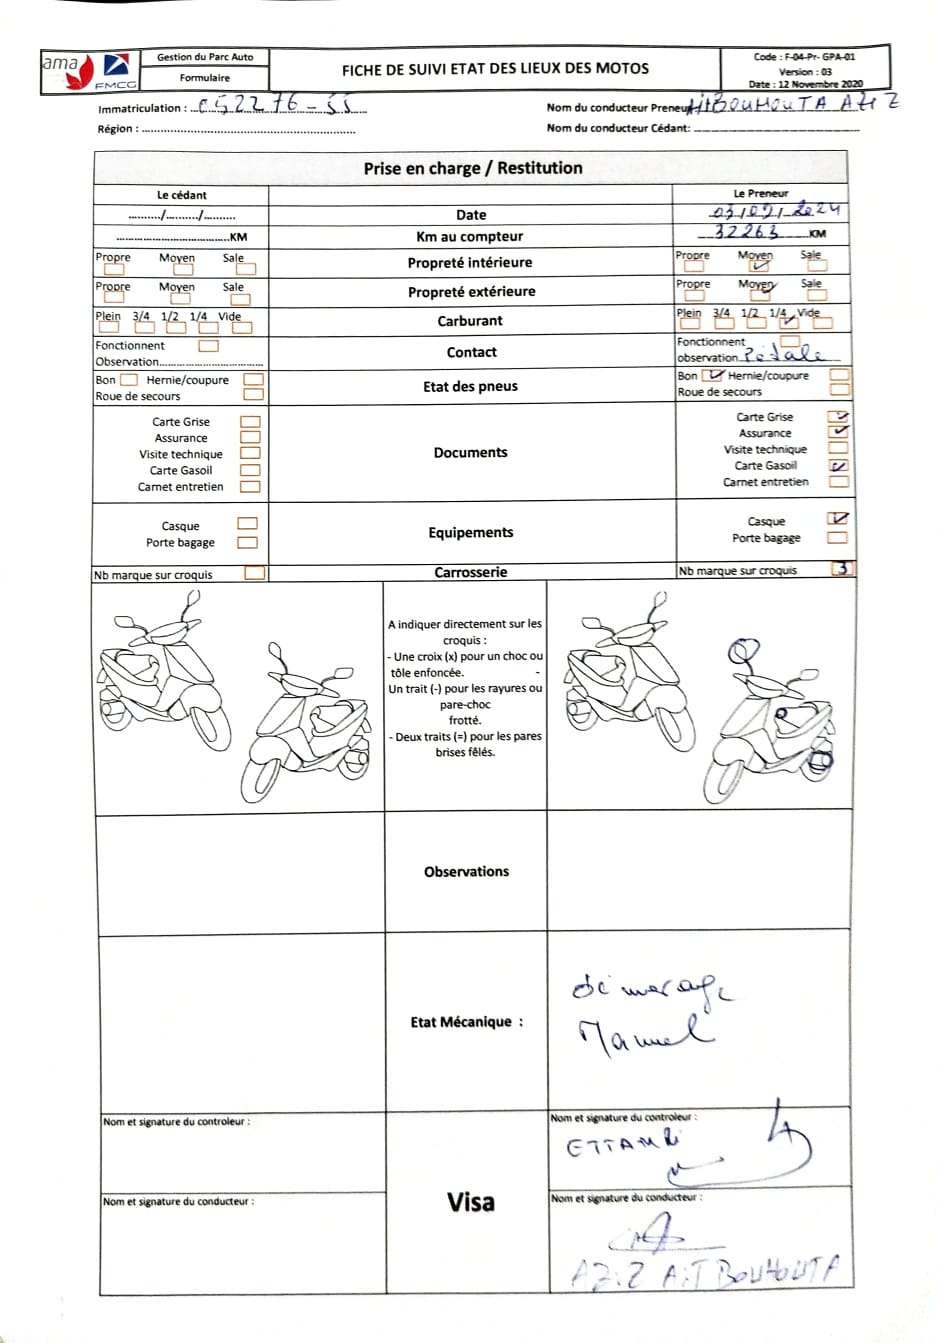 ama
FMCG
Gestion du Parc Auto
Formulaire
FICHE DE SUIVI ETAT DES LIEUX DES MOTOS
Code : F-04-Pr- GPA-01
Version : 03
Date : 12 Novembre 2020
Immatriculation : 052276-55
Nom du conducteur Preneur
BOUHOUTA AZIZ
Région :
Nom du conducteur Cédant:
Prise en charge / Restitution
Le cédant
Le Preneur
........../........../..........
Date
03/09/2024
KM
Km au compteur
32263 KM
Propre Moyen Sale
Propreté intérieure
Propre Moyen Sale
Propre Moyen Sale
Propreté extérieure
Propre Moyen Sale
Plein 3/4 1/2 1/4 Vide
Carburant
Plein 3/4 1/2 1/4 Vide
Fonctionnent
Observation
Contact
Fonctionnent
observation Pédale
Bon Hernie/coupure
Roue de secours
Etat des pneus
Bon Hernie/coupure
Roue de secours
Carte Grise
Assurance
Visite technique
Carte Gasoil
Carnet entretien
Documents
Carte Grise
Assurance
Visite technique
Carte Gasoil
Carnet entretien
Casque
Porte bagage
Equipements
Casque
Porte bagage
Nb marque sur croquis
Carrosserie
Nb marque sur croquis 3
A indiquer directement sur les
croquis :
- Une croix (x) pour un choc ou
tôle enfoncée. -
Un trait (-) pour les rayures ou
pare-choc
frotté.
- Deux traits (=) pour les pares
brises fêlés.
Observations
Etat Mécanique :
démarage
Manuel
Nom et signature du controleur :
Nom et signature du controleur :
ETTAMRI
Visa
Nom et signature du conducteur :
Nom et signature du conducteur :
AZIZ AIT BOUHOUTA